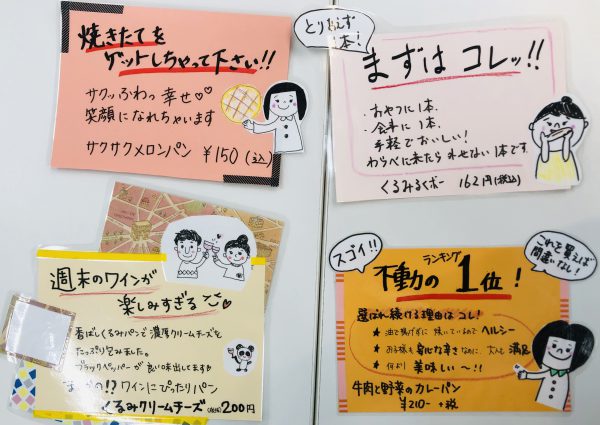 焼きたてを
ゲットしちゃって下さい!!
サクッふわっ 幸せ♡♡
笑顔になれちゃいます
サクサクメロンパン ¥150(税込)
とりあえず
1本!
まずは コレッ!!
・おやつに1本、
・食事に1本、
手軽でおいしい!
わらべに来たら 外せない1本です
くるみるくボー 162円(税込)
週末のワインが
楽しみすぎる♡
香ばしくるみパンで濃厚クリームチーズを
たっぷり包みました。
ブラックペッパーが良い味出してます
まさかの!?ワインにぴったりパン
くるみクリームチーズ(税抜)200円
スゴイ!!
これを買えば
間違いなし!
ランキング
不動の1位!
選ばれ続ける理由はコレ!
★油で揚げずに焼いているのでヘルシー
★お子様も安心な辛さなのに、大人も満足
★何より美味しい~!!
牛肉と野菜のカレーパン
¥210-+税